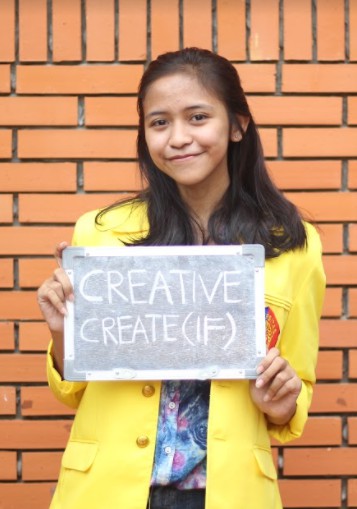 CREATIVE
CREATE(IF)